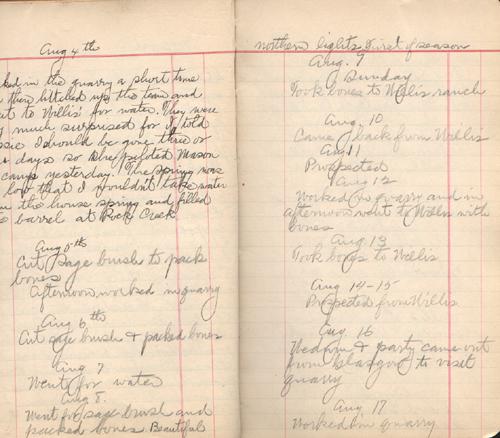 Aug 4th
ked in the quarry a short time
then hitched up the team and
et to Willis' for water. They were
much surprised for I told
ssie I would be gone three or
days so
camp yesterday. The spring was
low that I wouldn't take water
m the house spring and filled
barrel at Rock Creek
Aug 5th
Cut sage brush to pack
bones
Afternoon worked in quarry
Aug 6th
Cut sage brush & packed bones
Aug 7
Went for water
Aug 8.
Went for sage brush and
packed bones. Beautiful
northern lights. First of season
Aug. 9
Sunday
Took bones to Willis ranch
Aug. 10
Came back from Willis
Aug 11
Prospected
Aug 12
Worked in quarry and in
afternoon went to Willis with
bones
Aug 13
Took bones to Willis
Aug 14-15
Prospected from Willis
Aug 16
& party came out
from Glasgow to visit
quarry
Aug 17
Worked in quarry